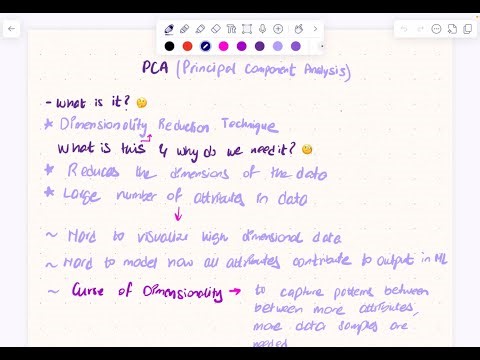 PCA (Principal Component Analysis)
- What is it? 🤔
* Dimensionality Reduction Technique
What is this & why do we need it? 🤔
* Reduces the dimensions of the data
* Large number of attributes in data
~ Hard to visualize high dimensional data
~ Hard to model how all attributes contribute to output in ML
~ Curse of Dimensionality → to capture patterns between
between more attributes,
more data samples are
needed